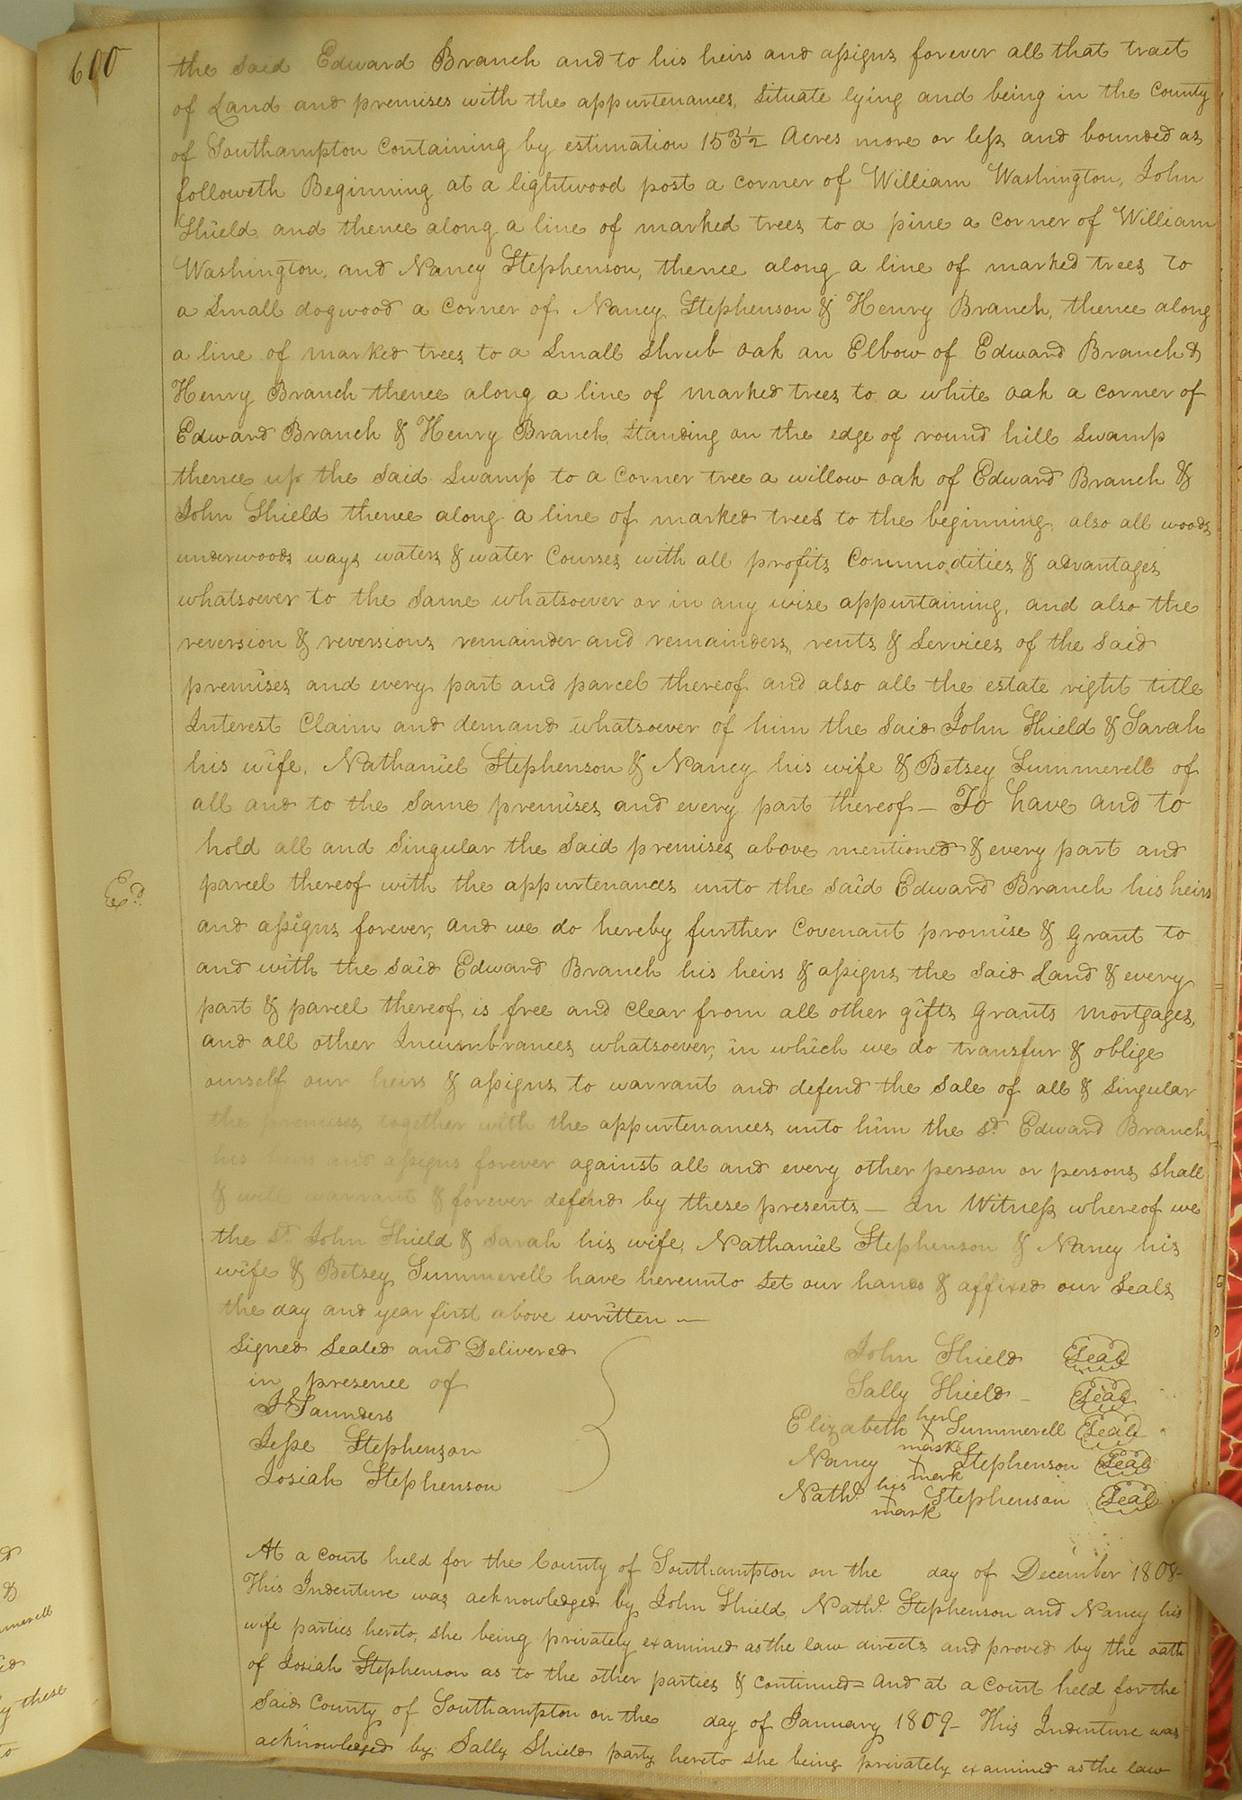 600
the said Edward Branch and to his heirs and assigns forever all that tract
of Land and premises with the appurtenances, Situate lying and being in the County
of Southampton Containing by estimation 153½ Acres more or less and bounded as
followeth Beginning at a lightwood post a corner of William Washington, John
Shield and thence along a line of marked trees to a pine a corner of William
Washington, and Nancy Stephenson, thence along a line of marked trees to
a Small dogwood a Corner of Nancy Stephenson & Henry Branch, thence along
a line of marked trees to a Small Shrub oak an Elbow of Edward Branch &
Henry Branch thence along a line of marked trees to a white oak a corner of
Edward Branch & Henry Branch Standing on the edge of round hill Swamp
thence up the said Swamp to a Corner tree a willow oak of Edward Branch &
John Shield thence along a line of marked trees to the beginning, also all woods
underwoods ways waters & water Courses with all profits Commodities & advantages
whatsoever to the Same whatsoever or in any wise appurtaining, and also the
reversion & reversions remainder and remainders, rents & Services of the Said
premises and every part and parcel thereof and also all the estate right title
Interest Claim and demand whatsoever of him the said John Shield & Sarah
his wife, Nathaniel Stephenson & Nancy his wife & Betsey Summerell of
all and to the Same premises and every part thereof – To have and to
hold all and Singular the Said premises above mentioned & every part and
Exd.
parcel thereof with the appurtenances unto the said Edward Branch his heirs
and assigns forever, and we do hereby further Covenant promise & grant to
and with the said Edward Branch his heirs & assigns the said Land & every
part & parcel thereof is free and Clear from all other gifts grants mortgages,
and all other Incumbrances whatsoever, in which we do transfur & oblige
ourself our heirs & assigns to warrant and defend the Sale of all & Singular
the premises together with the appurtenances unto him the sd. Edward Branch
his heirs and assigns forever against all and every other person or persons shall
& will warrant & forever defend by these presents – In Witness whereof we
the sd. John Shield & Sarah his wife, Nathaniel Stephenson & Nancy his
wife & Betsey Summerell have hereunto Set our hands & affixed our Seals
the day and year first above written –
Signed Sealed and Delivered
in presence of
Saunders
Jesse Stephenson
Josiah Stephenson
John Shield Seal
Sally Shield – Seal
Elizabeth her X mark Summerell Seal
Nancy X mark Stephenson Seal
Nathl. his X mark Stephenson Seal
At a Court held for the County of Southampton on the day of December 1808–
This Indenture was acknowledged by John Shield, Nathl. Stephenson and Nancy his
wife parties hereto, she being privately examined as the law directs and proved by the oath
of Josiah Stephenson as to the other parties & Continued = And at a Court held for the
Said County of Southampton on the day of January 1809– This Indenture was
acknowledged by Sally Shield party hereto she being privately examined as the law